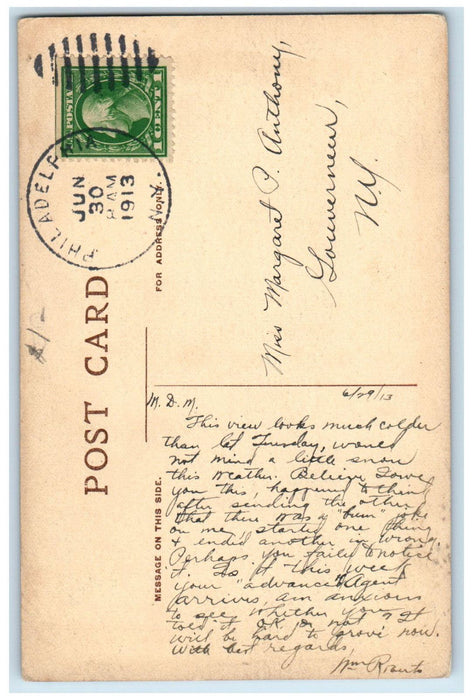 U.S. POSTAGE
1 CENT 1
PHILADELPHIA, N.Y.
JUN
30
AM
1913
Miss Margaret P. Anthony,
Gouverneur,
N.Y.
FOR ADDRESS ONLY.
POST CARD
MESSAGE ON THIS SIDE.
6/29/13
M. D. M.
This view looks much colder
than last Tuesday, would
not mind a little snow
this weather. Believe I owe
you this, happened to think
after sending the other
that there was a "bum" joke
on me, started one thing
& ended another in wrong
Perhaps you failed to notice
it. So if this week
your "advance" Agent
arrives, am anxious
to see whether you
told it O.K. or not. It
will be hard to prove now.
With best regards,
Wm